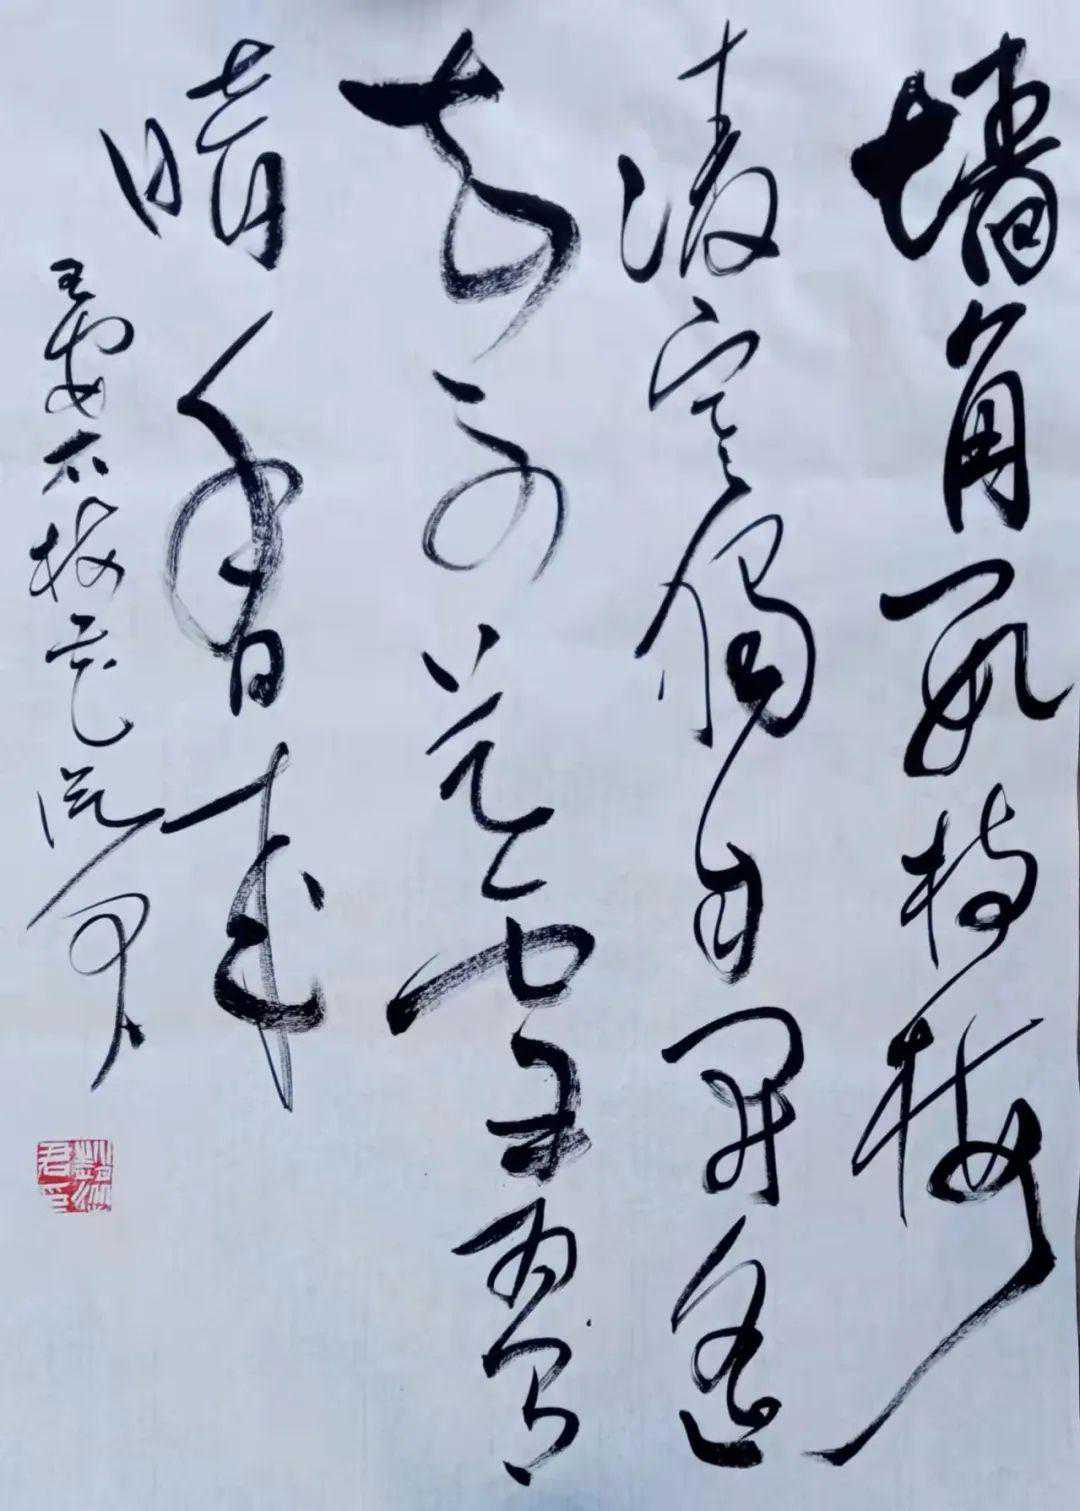 墙角數枝梅
凌寒獨自開遥
知不是雪為有
暗香来
王安石梅花